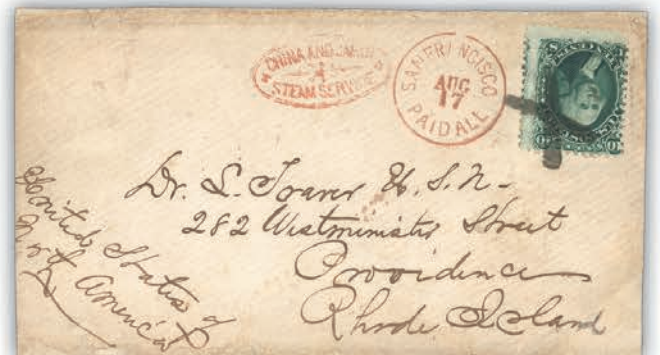 CHINA AND JAPAN
STEAM SERVICE
SAN FRANCISCO
AUG
17
PAID ALL
10
10
Dr. L. U.S.N.
282 Westminister Street
Providence
Rhode Island
United States of
North America